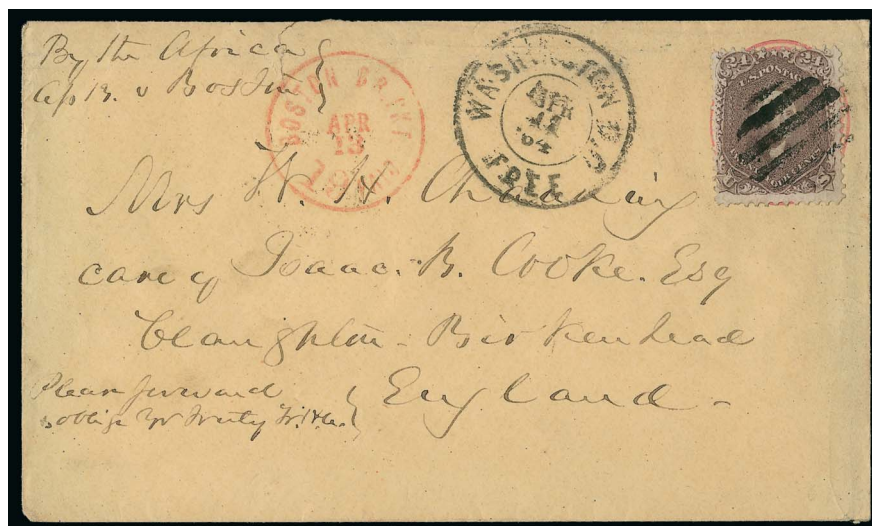 By the Africa
Ap 13. v Boston
BOSTON BR. PKT
APR
13
PAID
WASHINGTON D.C.
APR
'64
FREE
24 24
U.S. POSTAGE
Mrs W. H. Channing
care of Isaac. B. Cooke. Esq
Claughton - Birkenhead
England -
Please forward
& oblige yr truly W.H.C.